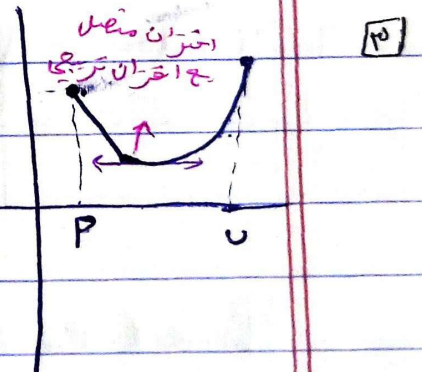 ٣
اقتران متصل
مع اقتران تربيعي
P
ب